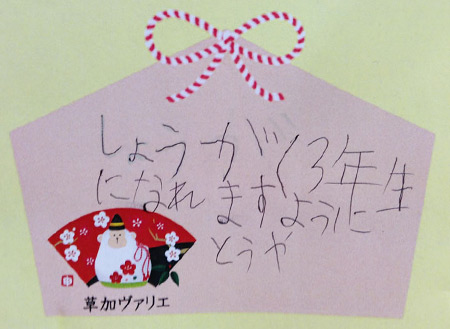 しょうがく3年生
になれますように
とうや
草加ヴァリエ